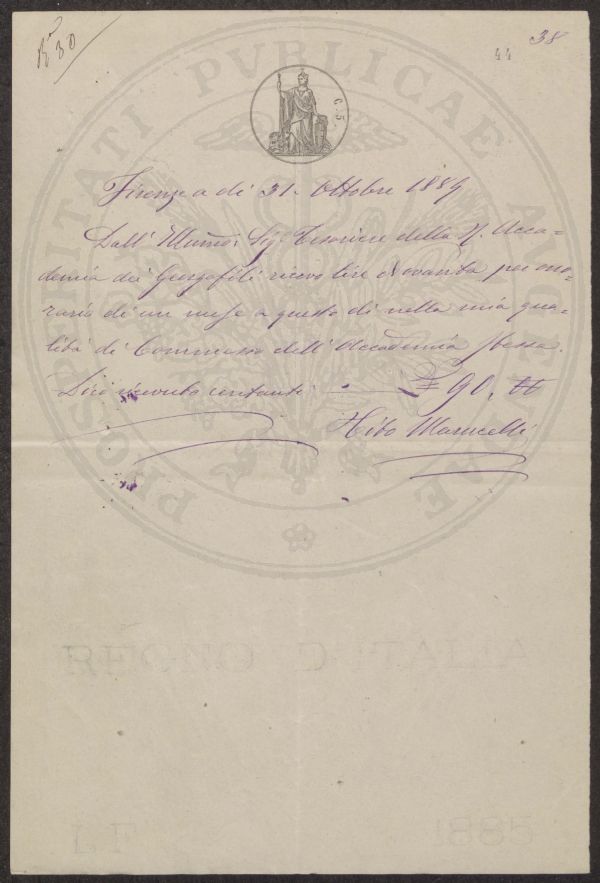 38
44
N° 30
PROSPERITATI PVBLICAE AVGENDAE
C. 5.
Firenze a dì 31. Ottobre 1889
Dall' Illmo: Sigr Tesoriere della R. Acca=
demia dei Georgofili ricevo lire Novanta per ono=
rario di un mese a questo dì nella mia qua=
lità di Commesso dell' Accademia stessa.
Dico ricevute contanti. £ 90. tt
Tito Marucelli
REGNO D'ITALIA
L F 1885